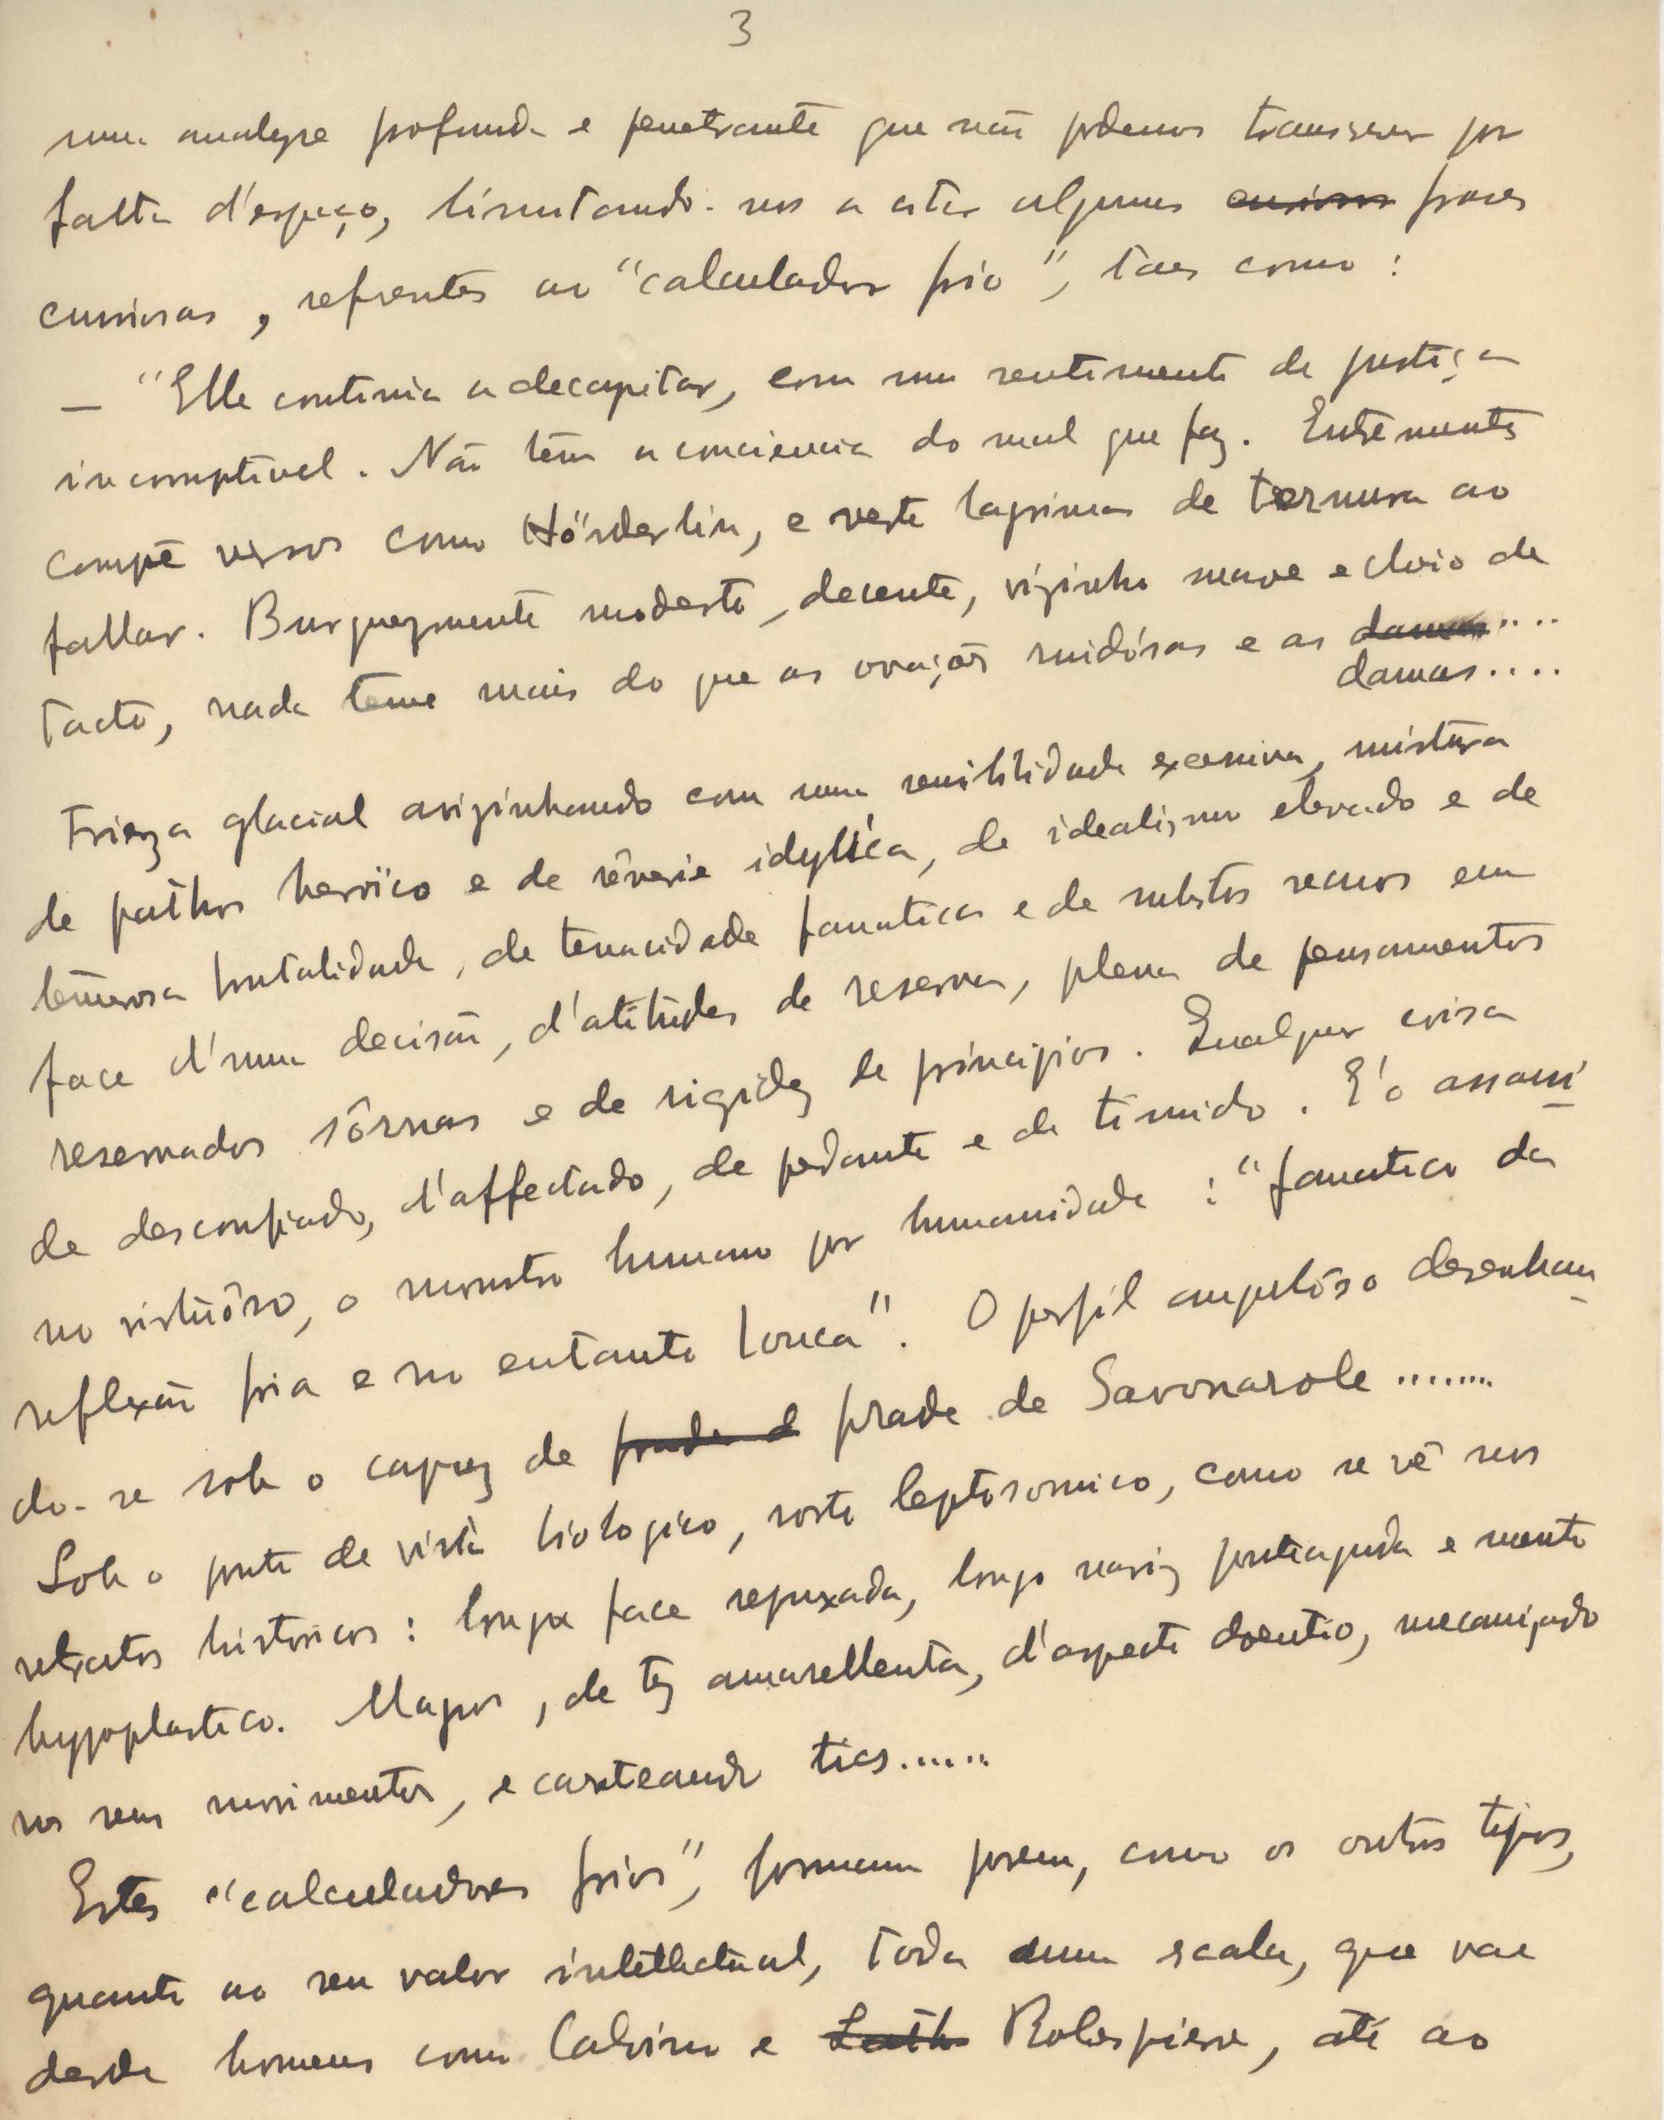 3
numa analyse profunda e penetrante que não podemos transcrever por
falta d'espaço, limitando-nos a citar algumas curiosas frases
curiosas, referentes ao "calculador frio", taes como:
— "Elle continúa a decapitar, com um sentimento de justiça
incorruptivel. Não tem a consciencia do mal que faz. Entrementes
compõe versos como Hölderlin, e verte lagrimas de ternura ao
fallar. Burguezmente modesto, decente, vizinho suave e cheio de
tacto, nada teme mais do que as ovações ruidósas e as damas....
damas....
Frieza glacial avizinhando com uma sensibilidade excessiva, mistura
de pathos heroïco e de rêverie idyllica, de idealismo elevado e de
temerosa brutalidade, de tenacidade fanatica e de subitos recuos em
face d'uma decisão, d'atitudes de reserva, plena de pensamentos
reservados sôrnas e de rigidez de principios. Qualquer coisa
de desconfiado, d'affectado, de pedante e de timido. E' o assassi
no virtuôso, o monstro humano por humanidade: "fanatico da
reflexão fria e no entanto louca". O perfil anguloso desenhan
do-se sob o capuz de frade d frade de Savonarole........
Sob o ponto de vista biologico, rosto leptosomico, como se vê nos
retratos historicos: longa face repuxada, longo nariz pontiagudo e mento
hypoplastico. Magro, de tez amarellenta, d'aspecto doentio, mecanizado
nos seus movimentos, e carateando tics......
Estes "calculadores frios", formam porem, como os outros tipos,
quanto ao seu valor intellectual, toda uma escala, que vae
desde homens como Calvino e Luth Robespierre, até ao